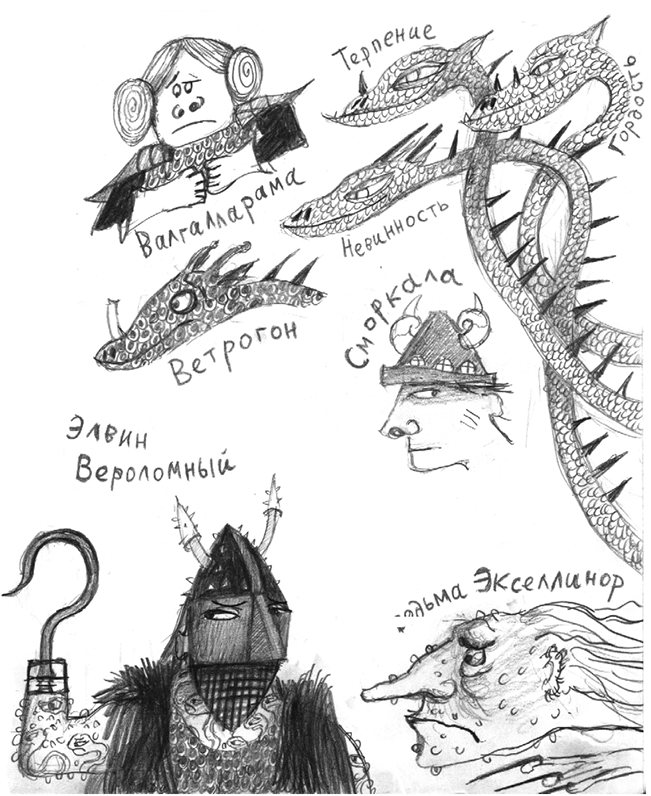 Терпение
Гордость
Валгалларама
Невинность
Ветрогон
Сморкала
Элвин
Вероломный
Экселлинор